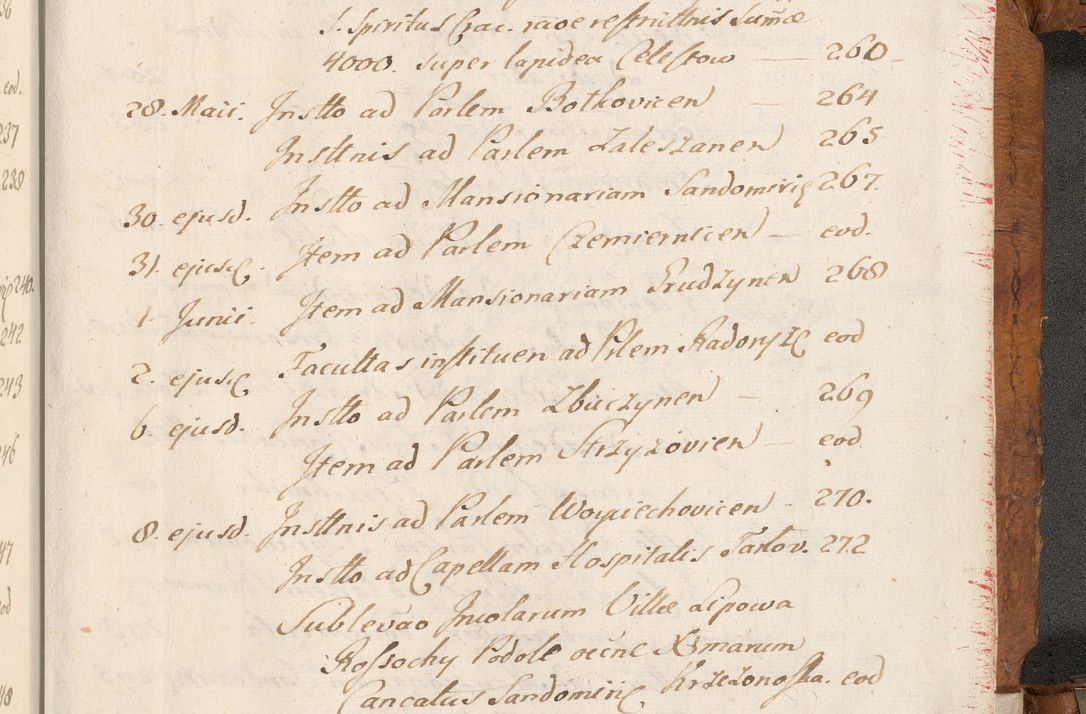 S. Spiritus Crac. raoe restnittnis Sumae
4000. super lapidea Celestow — 260
28. Maii. Instto ad Parlem Botkovicen — 264
Insttnis ad Parlem Zaleszanen 265
30. ejusd. Instto ad Mansionariam Sandomirię 267.
31. ejusd. Item ad Parlem Czemiernicen — eod.
1. Junii. Item ad Mansionariam Prudzynen 268
2. ejusd. Facultas instituen ad Prlem Radorysze eod
6. ejusd. Instto ad Parlem Zbuczynen — 269
Item ad Parlem Strzyżovicen — eod
8. ejusd. Insttnis ad Parlem Woyciechovicen . 270.
Instto ad Capellam Hospitalis Tarłov. 272
Sublevao Incolarum Villae Lipowa
Rossochy Podole oecne Xsmarum
Cancatus Sandomirię Krzezonosska. eod
240.
242
243
246
237
238
eod.